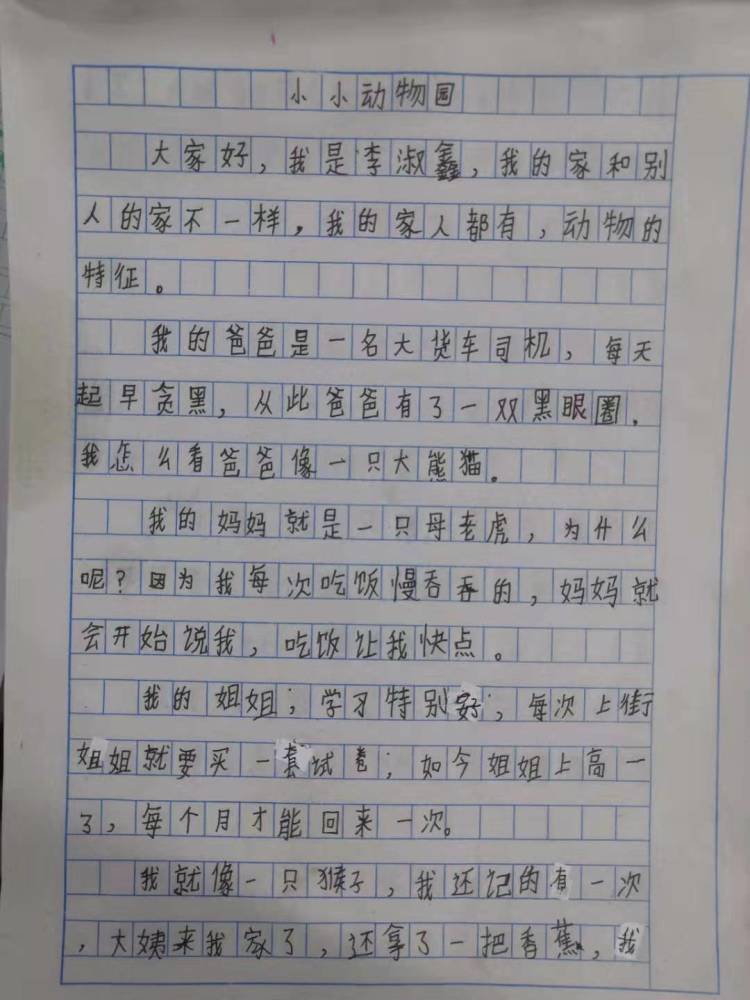 小小动物园
大家好，我是李淑鑫，我的家和别
人的家不一样，我的家人都有，动物的
特征。
我的爸爸是一名大货车司机，每天
起早贪黑，从此爸爸有了一双黑眼圈．
我怎么看爸爸像一只大熊猫。
我的妈妈就是一只母老虎，为什么
呢？因为我每次吃饭慢吞吞的，妈妈就
会开始说我，吃饭让我快点。
我的姐姐；学习特别好；每次上街
姐姐就要买一套试卷；如今姐姐上高一
了，每个月才能回来一次。
我就像一只猴子，我还记的有一次
，大姨来我家了，还拿了一把香蕉，我